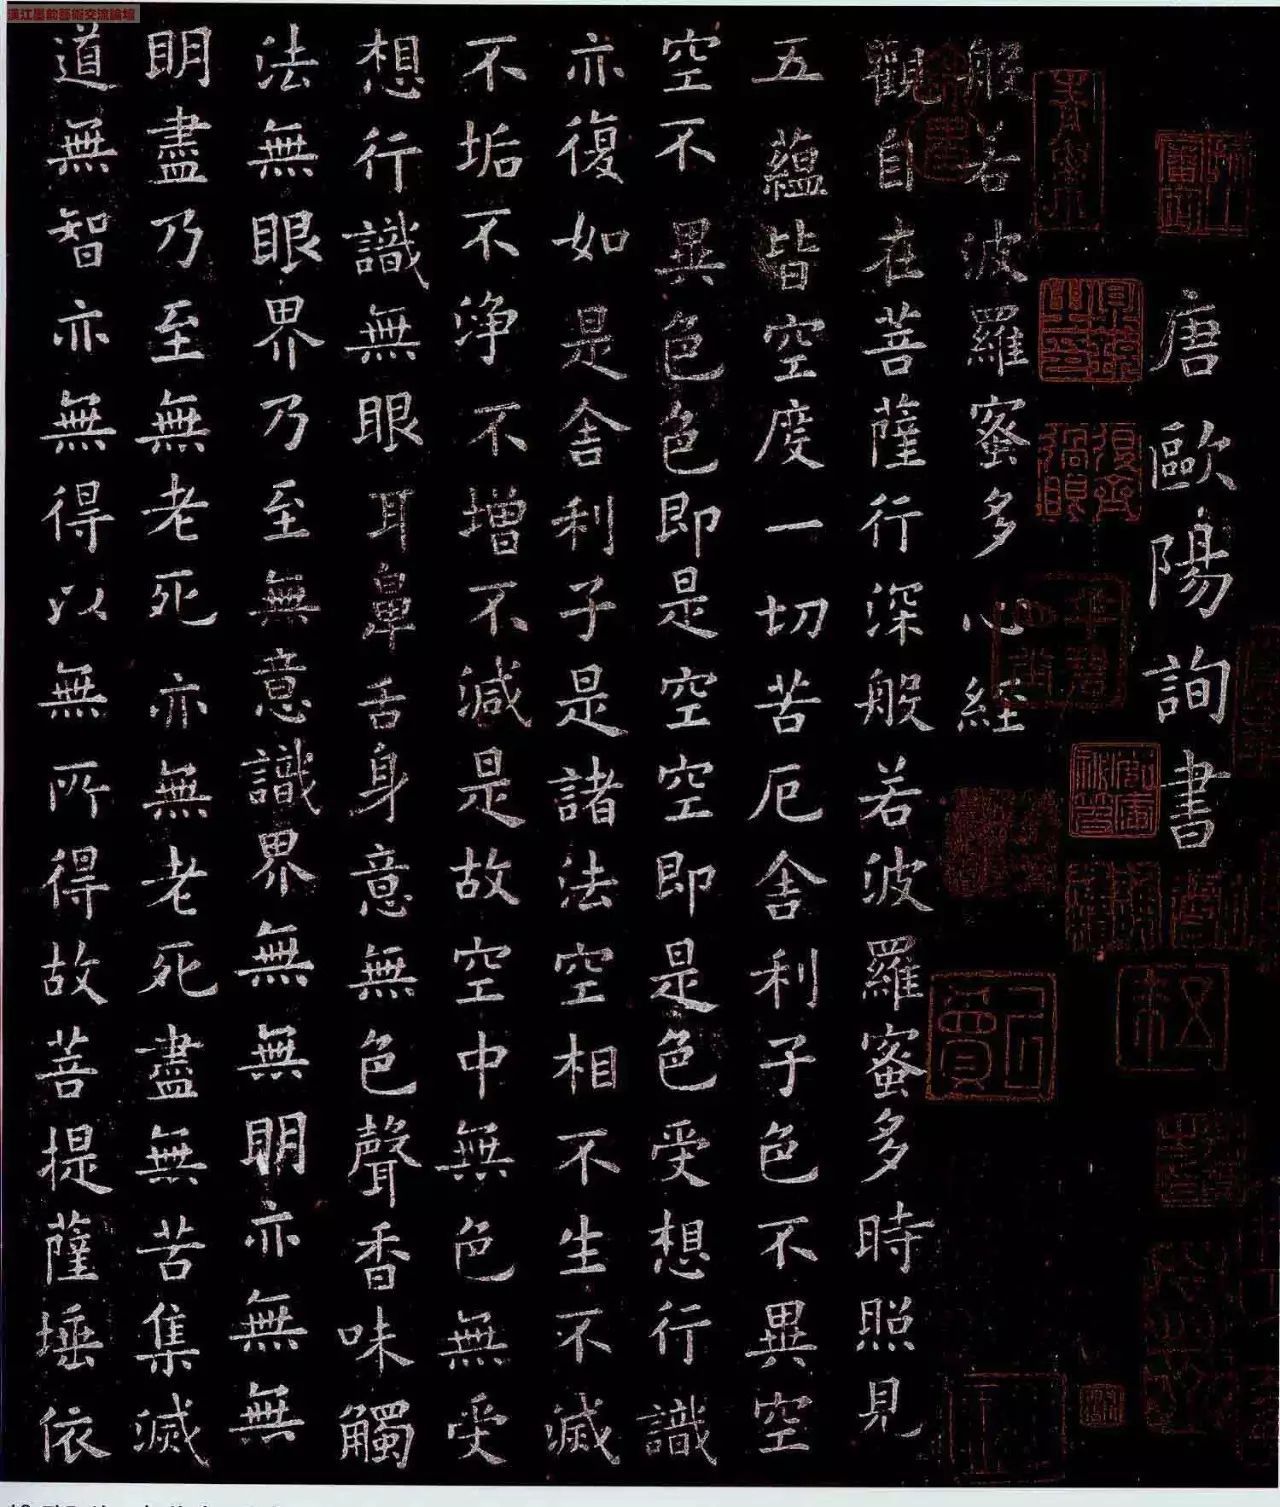 漢江墨韵藝術交流論壇
唐歐陽詢書
般若波羅蜜多心経
觀自在菩薩行深般若波羅蜜多時照見
五蘊皆空度一切苦厄舍利子色不異空
空不異色色即是空空即是色受想行識
亦復如是舍利子是諸法空相不生不滅
不垢不淨不增不減是故空中無色無受
想行識無眼耳鼻舌身意無色聲香味觸
法無眼界乃至無意識界無無明亦無無
明盡乃至無老死亦無老死盡無苦集滅
道無智亦無無得以無所得故菩提薩埵依